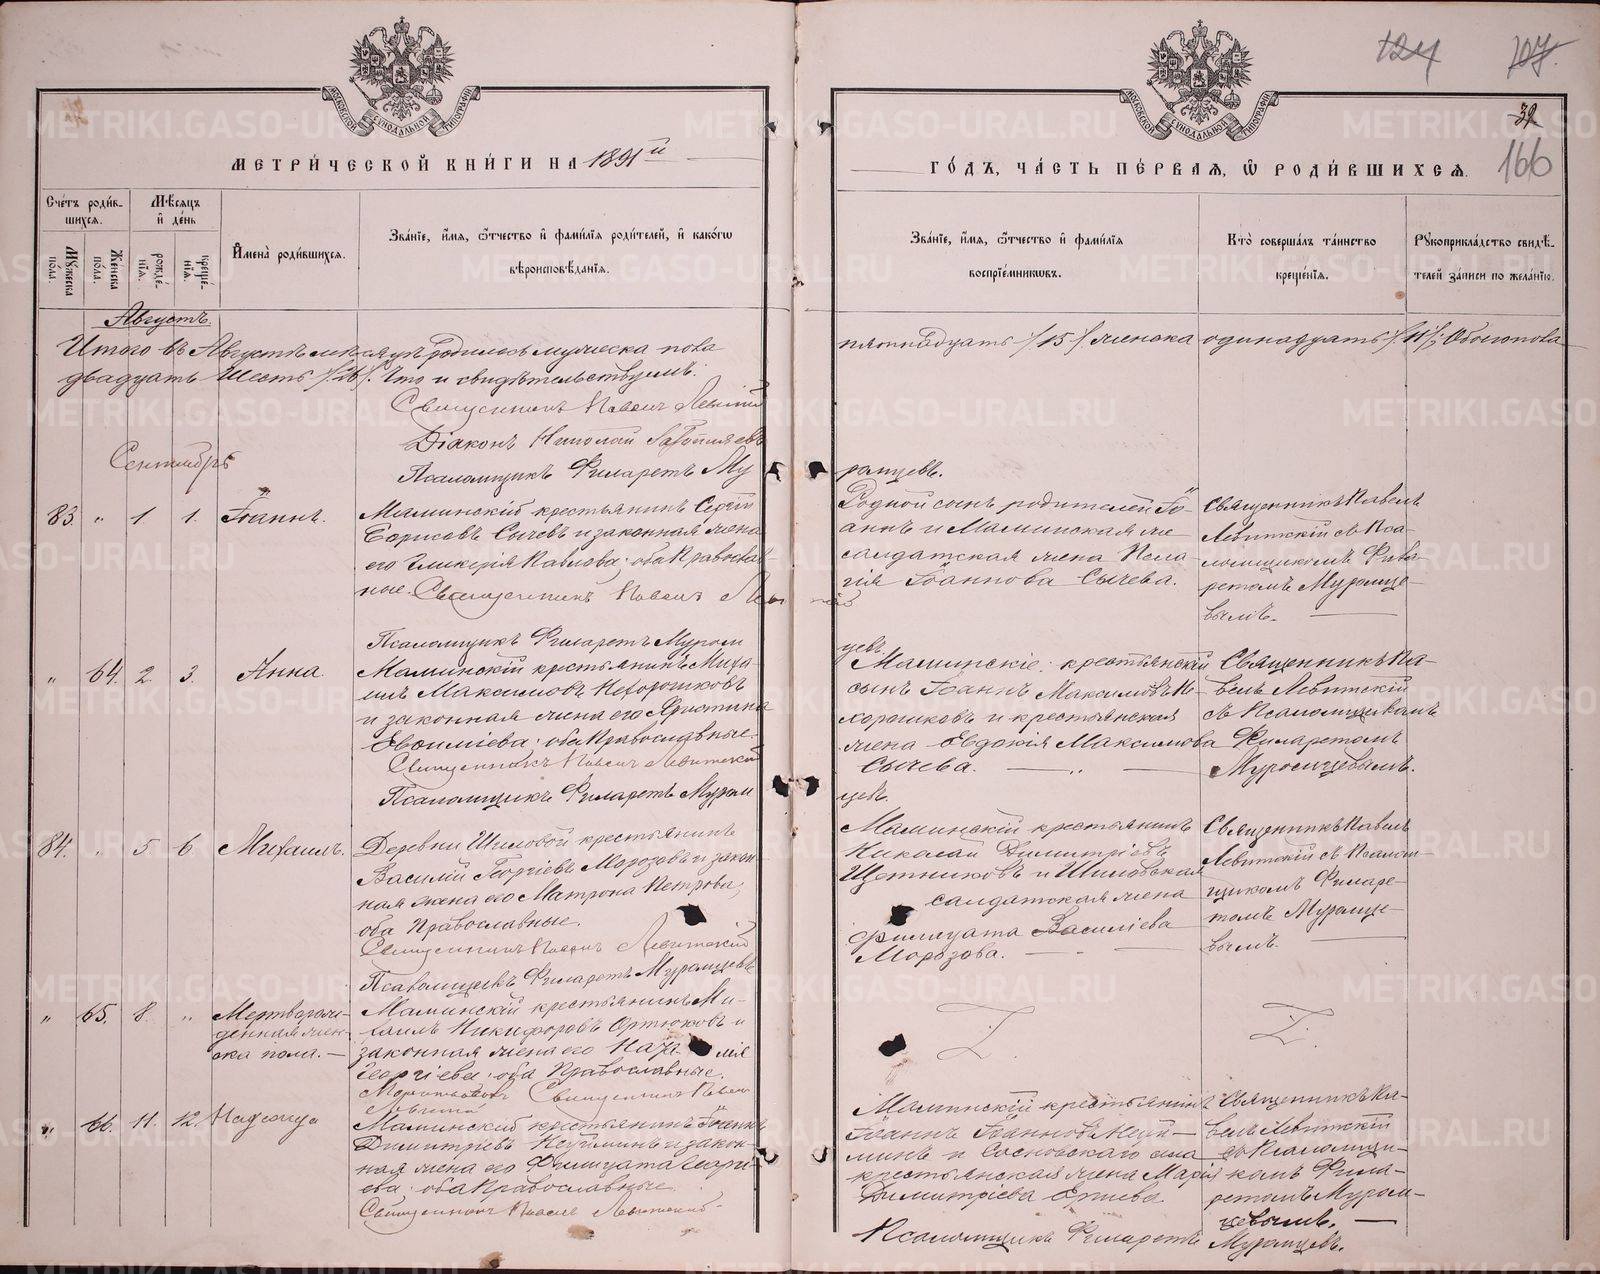 124 107.
39
166
МОСКОВСКОЙ СУНОДАЛЬНОЙ ТИПОГРАФІИ
МОСКОВСКОЙ СУНОДАЛЬНОЙ ТИПОГРАФІИ
МЕТРИ́ЧЕСКОЙ КНИ́ГИ НА 1891й
ГО́ДЪ, ЧА́СТЬ ПЕ́РВАЯ, Ѡ РОДИ́ВШИХСЯ.
Сче́тъ роди́в-
шихся.
Мѣ́сяцъ
и де́нь
Му́жеска
по́ла.
Же́нска
по́ла.
рожде́-
нїя.
креще́-
нїя.
Имена̀ роди́вшихся.
Зва́нїе, и́мя, ѻ́тчество и фами́лїя роди́телей, и како́гѡ
вѣроисповѣ́данїя.
Зва́нїе, и́мя, ѻ́тчество и фами́лїя
воспрїе́мникѡвъ.
Кто̀ соверша́лъ та́инство
креще́нїя.
Рукоприкла́дство свидѣ́-
телей за́писи по жела́нїю.
Августъ.
Итого въ Августѣ мѣсяцѣ родилось мужеска пола
пятнадцать /15/ женска одинадцать /11/; Обоегопола
двадцать шесть /26/. Что и свидѣтельствуемъ:
Священникъ Павелъ Левитскій
Діаконъ Николай
Псаломщикъ Филаретъ Му
ромцевъ.
Сентябрь
83. " 1 1. Іоаннъ.
Маминскій крестьянинъ Сергій
Борисовъ Сычевъ и законная жена
его Гликерія Павлова; оба Православ
ные. Священникъ Павелъ Левитскій
Псаломщикъ Филаретъ Муром
цевъ.
Родной сынъ родителей Іо-
аннъ и Маминская же
салдатская жена Пела
гія Іоаннова Сычева.
Священникъ Павелъ
Левитскій съ Пса-
ломщикомъ Фила-
ретомъ Муромце-
вымъ.
" 64. 2. 3. Анна.
Маминскій крестьянинъ Миха-
илъ Максимовъ Нехорошковъ
и законная жена его Христина
Евѳиміева; оба Православные.
Священникъ Павелъ Левитскій
Псаломщикъ Филаретъ Муром
цевъ.
Маминскіе: крестьянскій
сынъ Іоаннъ Максимовъ Не-
хорошковъ и крестьянская
жена Евдокія Максимова
Сычева. — „ —
Священникъ Па-
велъ Левитскій
съ Псаломщикомъ
Филаретомъ
Муромцевымъ.
84. " 5 6. Михаилъ.
Деревни Шиловой крестьянинъ
Василій Георгіевъ Морозовъ и закон-
ная жена его Матрона Петрова;
оба Православные.
Священникъ Павелъ Левитскій
Псаломщикъ Филаретъ Муромцевъ
Маминскій крестьянинъ
Николай Димитріевъ
Щетниковъ и Шиловская
салдатская жена
Филицата Василіева
Морозова.
Священникъ Павелъ
Левитскій съ Псалом-
щикомъ Филаре-
томъ Муромце-
вымъ.
" 65. 8. " Мертворож-
денная жен-
ска пола. —
Маминскій крестьянинъ Ми-
хаилъ Никифоровъ Ортюковъ и
законная жена его
Георгіева; оба Православные.
Священникъ Павелъ
Левитскій
" 66. 11. 12. Надежда
Маминскій крестьянинъ Іоаннъ
Димитріевъ Неуйминъ и закон-
ная жена его Филицата Георгі-
ева; оба Православные.
Священникъ Павелъ Левитскій
Маминскій крестьянинъ
Іоаннъ Іоанновъ Неуй-
минъ и Сосновскаго села
крестьянская жена Марія
Димитріева
Священникъ Па-
велъ Левитскій
съ Псаломщи-
комъ Фила-
ретомъ Муром-
цевымъ. —
Псаломщикъ Филаретъ Муромцевъ.
METRIKI.GASO-URAL.RU